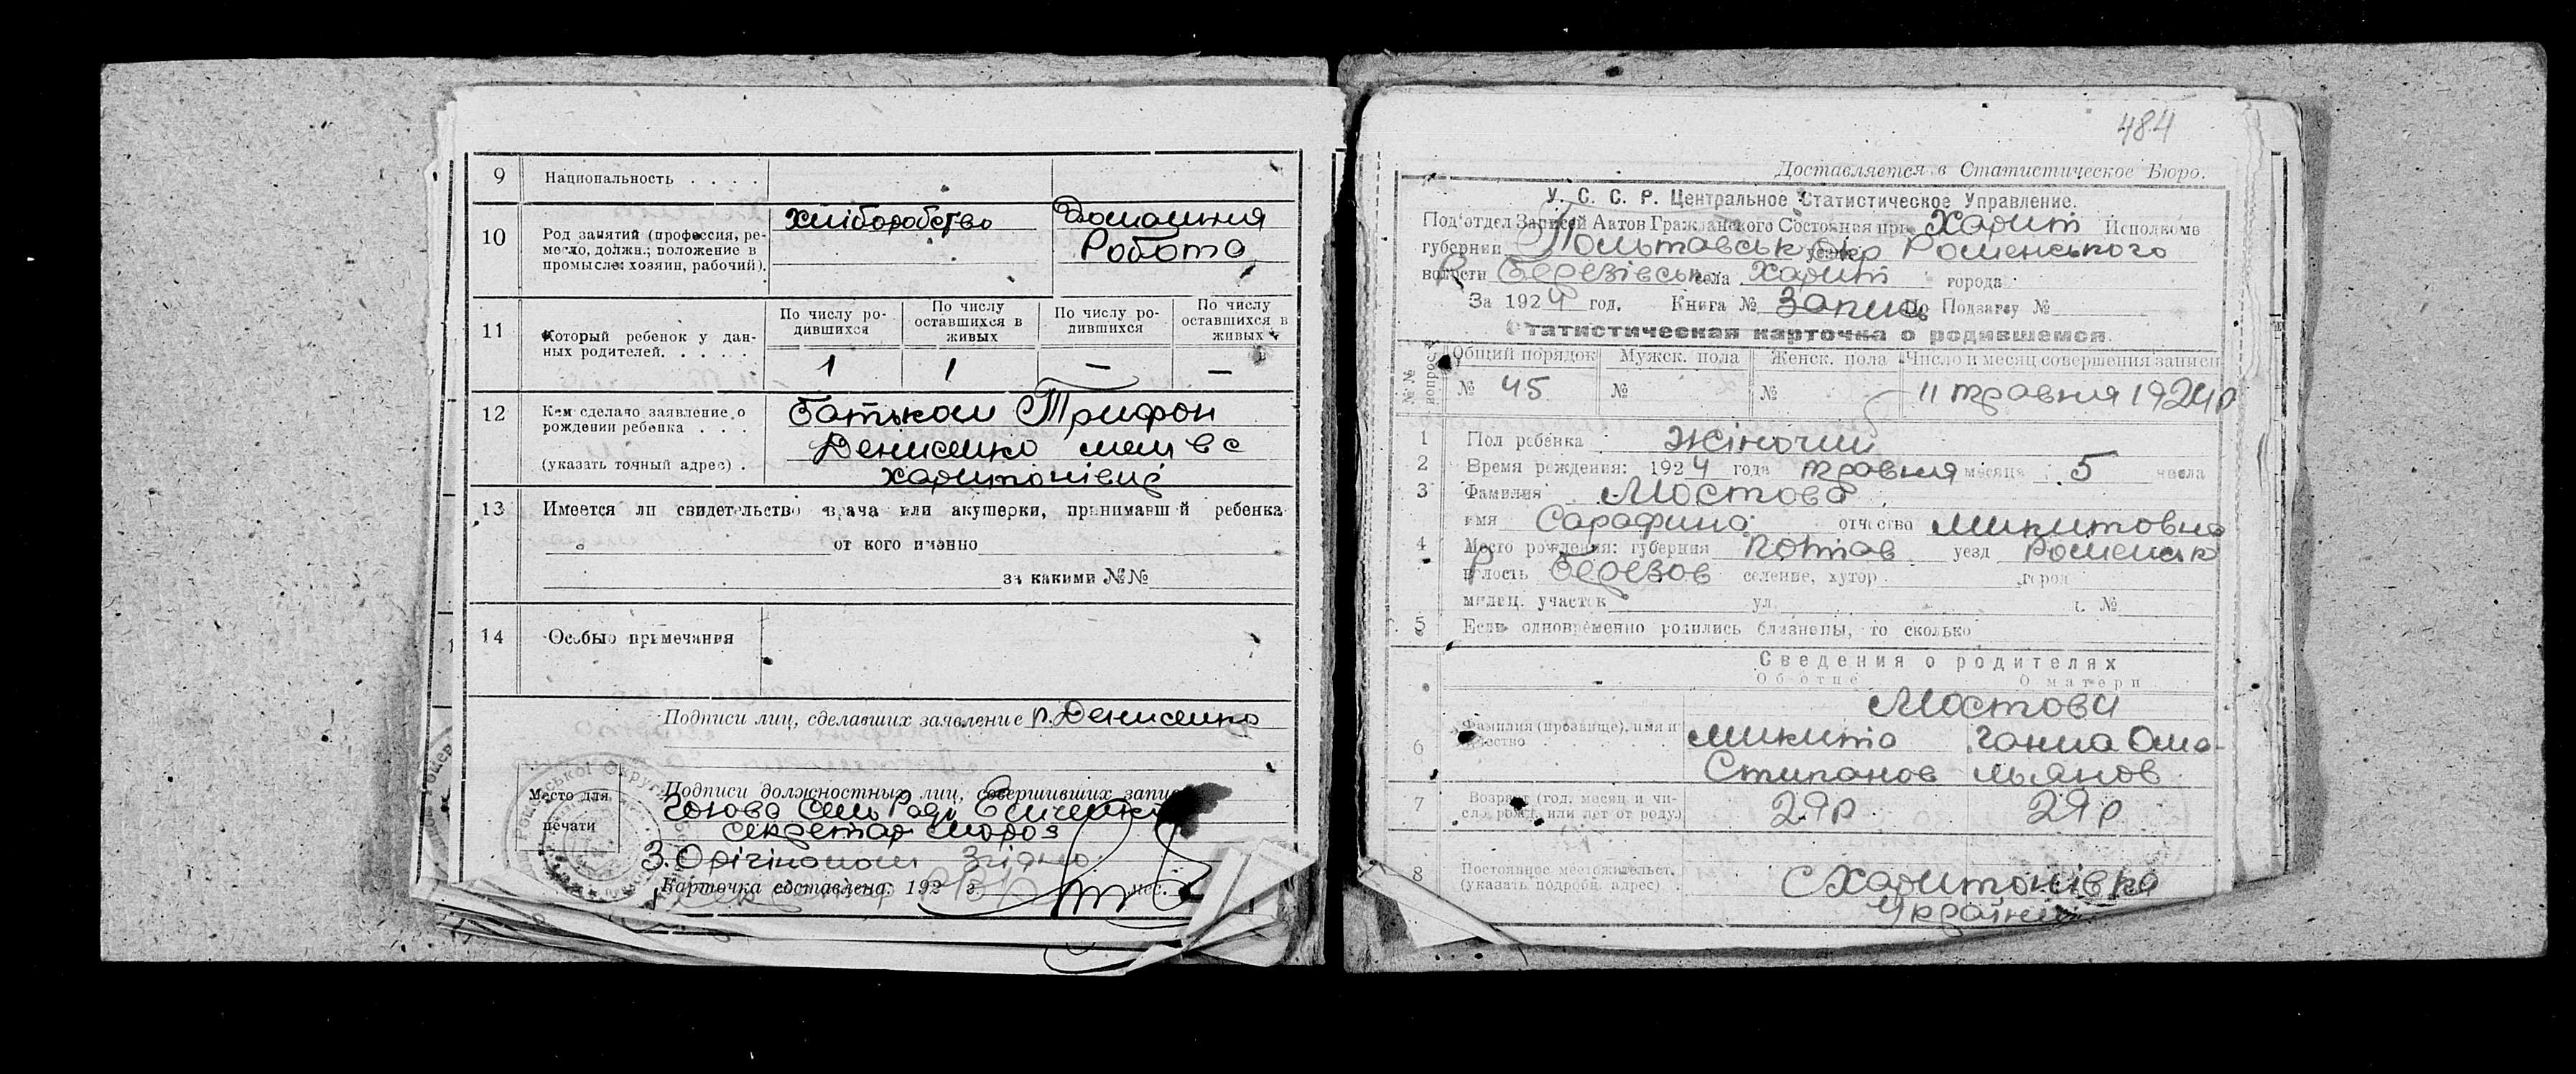 9 Национальность . . . .
10 Род занятий (профессия, ре-
месло, должн.; положение в
промысле: хозяин, рабочий).
Хліборобство
Домашня
Робота
11 Который ребенок у дан-
ных родителей. . . . .
По числу ро-
дившихся
По числу
оставшихся в
живых
По числу ро-
дившихся
По числу
оставшихся в
живых
1 1 — —
12 Кем сделано заявление о
рождении ребенка . . .
(указать точный адрес) .
батьком Трифон
Денисенко меш в с
Харитонівці
13 Имеется ли свидетельство врача или акушерки, принимавшей ребенка
от кого именно
за какими №№
14 Особые примечания
Подписи лиц, сделавших заявление Р. Денисенко
Место для
печати
Подписи должностных лиц, совершивших запись
Голова Сель Ради
секретар Мороз
З Орігіналом Згідно
Карточка составлена: 192 г. мес.
484
Доставляется в Статистическое Бюро.
У. С. С. Р. Центральное Статистическое Управление.
Под'отдел Записей Актов Гражданского Состояния при Харит Исполкоме
губернии Польтавськ Окр Роменського
волости Березівськ села Харит города
За 1924 год. Книга № Запись По Подзагсу №
Статистическая карточка о родившемся.
№№ вопроса
Общий порядок Мужск. пола Женск. пола Число и месяц совершения записи
№ 45 № № 11 травня 1924р
1 Пол ребенка Жіночий
2 Время рождения: 1924 года травня месяца 5 числа
3 Фамилия Мостова
имя Сарафина отчество Микитовна
4 Место рождения: губерния Полтав уезд Роменськ
волость Березов селение, хутор город
милиц. участок ул. №
5 Если одновременно родились близнецы, то сколько
Сведения о родителях
Об отце О матери
Мостови
6 Фамилия (прозвище), имя и
отчество
Микита
Стипанов
Ганна Оме-
льянов
7 Возраст (год, месяц и чи-
сло рожд. или лет от роду.)
29р 29р
8 Постоянное местожительст.
(указать подробн. адрес) .
С Харитонівка
Україна